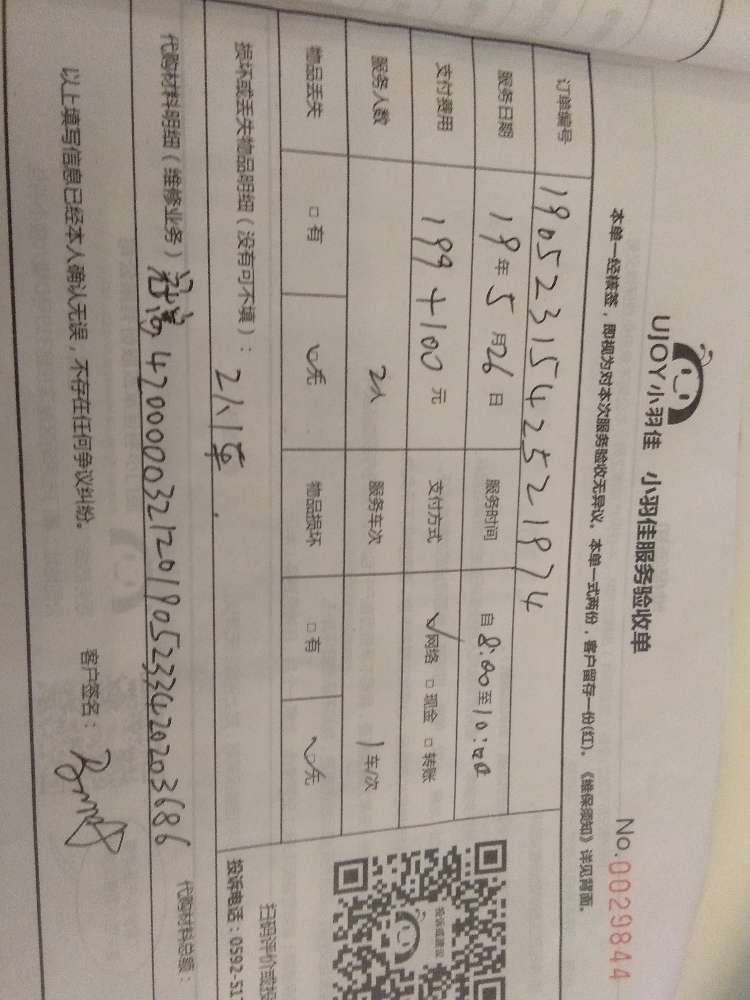 UJOY小羽佳 小羽佳服务验收单
No.0029844
本单一经核签，即视为对本次服务验收无异议。本单一式两份，客户留存一份(红)。《维保须知》详见背面。
订单编号 1905231542521874
服务日期 19年5月26日 服务时间 自8:00至10:00
支付费用 199+100元 支付方式 ☑网络 □现金 □转账
服务人数 2人 服务车次 1车/次
物品丢失 □有 ☑无 物品损坏 □有 ☑无
损坏或丢失物品明细（没有可不填）：
代购材料明细（维修业务） 4200000321201905233420203686 代购材料总额：
以上填写信息已经本人确认无误，不存在任何争议纠纷。 客户签名：
投诉或建议
扫码评价或投
投诉电话：0592-517